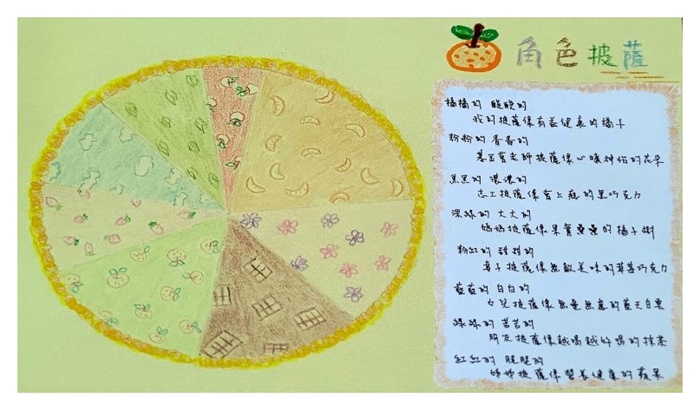 角色披薩
橘橘的 脆脆的
我的披薩像有益健康的橘子
粉粉的 香香的
基金會老師披薩像心曠神怡的花朵
黑黑的 濃濃的
志工披薩像會上癮的黑巧克力
深綠的 大大的
媽媽披薩像果實纍纍的橘子樹
粉紅的 甜甜的
妻子披薩像無敵美味的草莓巧克力
藍藍的 白白的
女兒披薩像無憂無慮的藍天白雲
綠綠的 苦苦的
朋友披薩像越喝越好喝的抹茶
紅紅的 脆脆的
披薩像營養健康的蘋果